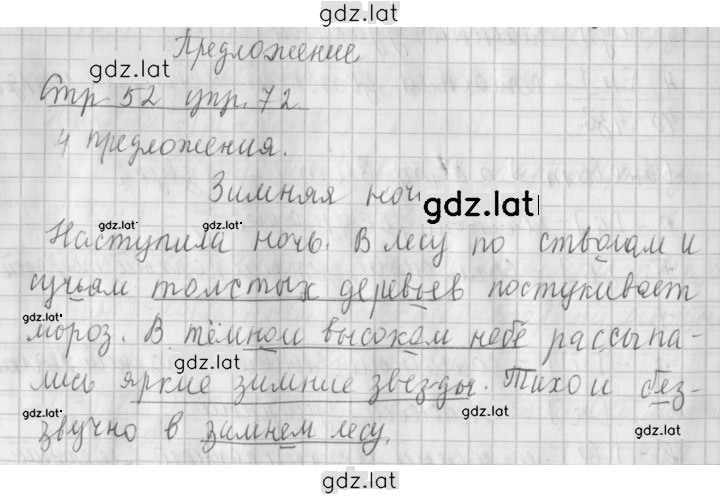 gdz.lat
Предложение
gdz.lat
Стр 52 упр. 72
4 предложения.
Зимняя ноч
gdz.lat
gdz.lat gdz.lat
Наступила ночь. В лесу по стволам и
сучьям толстых деревьев постукивает
gdz.lat
мороз. В тёмном высоком небе рассыпа-
gdz.lat
лись яркие зимние звезды. Тихо и без-
gdz.lat gdz.lat
звучно в зимнем лесу.
gdz.lat
gdz.lat